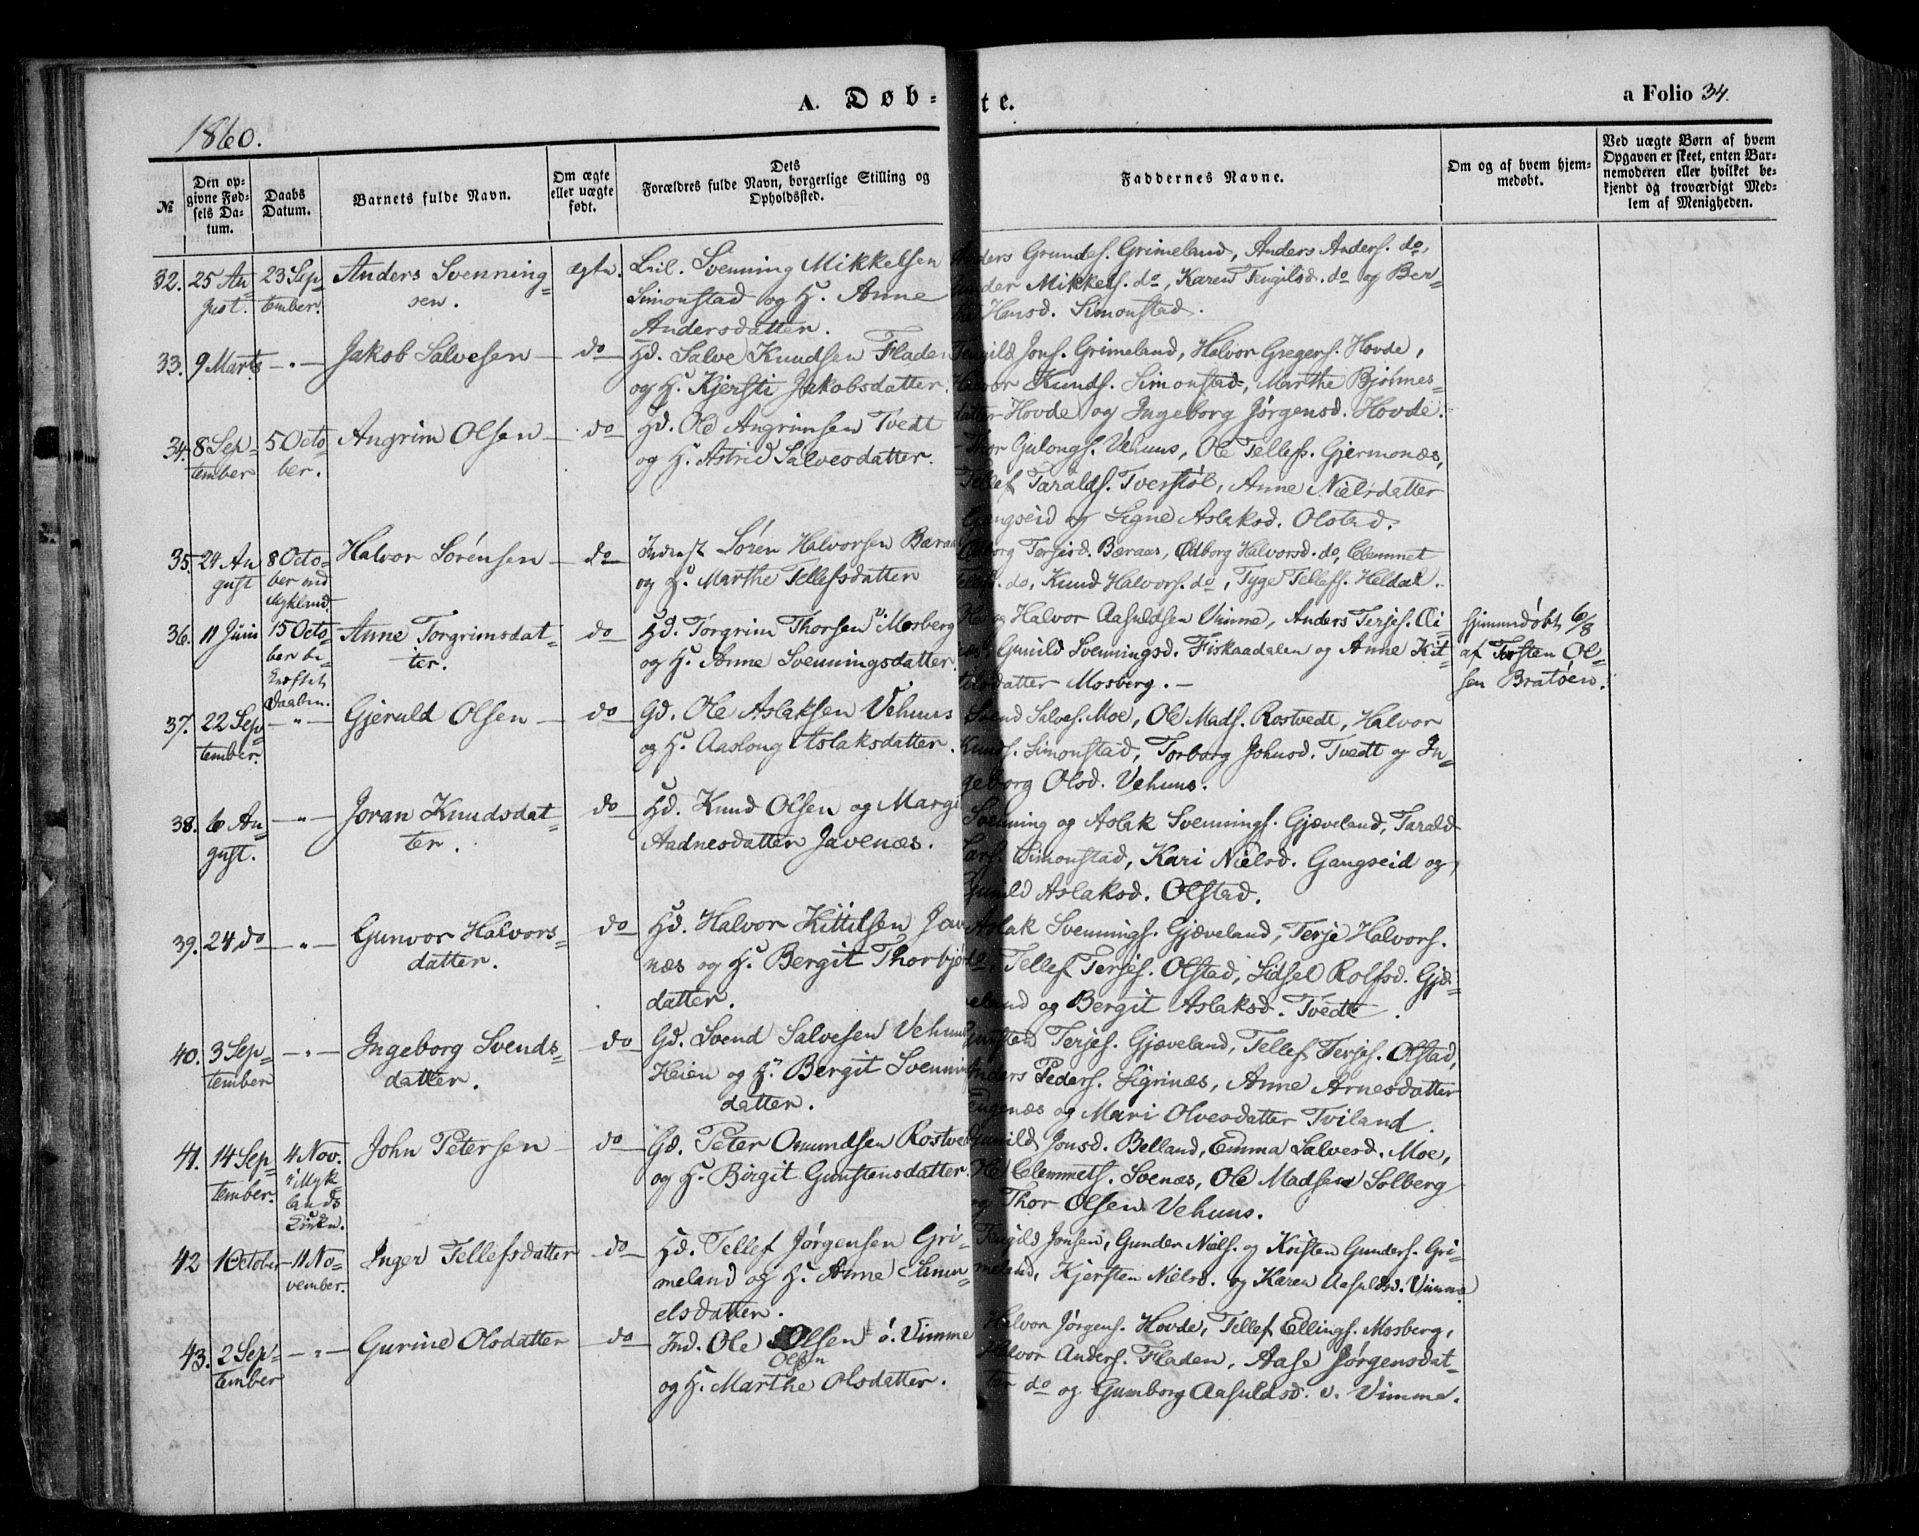 A. Døb-te.
a Folio 34.
1860.
№
Den op-
givne Fød-
sels Da-
tum.
Daabs
Datum.
Barnets fulde Navn.
Om ægte
eller uægte
født.
Dets
Forældres fulde Navn, borgerlige Stilling og
Opholdssted.
Faddernes Navne.
Om og af hvem hjem-
medøbt.
Ved uægte Børn af hvem
Opgaven er skeet, enten Bar-
nemoderen eller hvilket be-
kjendt og troværdigt Med-
lem af Menigheden.
32.
25 Au-
gust.
23 Sep-
tember.
Anders Svenning-
sen.
ægte.
Svenning Mikkelsen
Simonstad og H. Anne
Andersdatter.
Grundes. Grimeland, Anders Anders. do,
Mikkels. do, Karen Tengilsd. do og Ber-
Hansd. Simonstad.
33.
9 Marts
-"-
Jakob Salvesen
do
Hd. Salve Knudsen Fladen
og H. Kjersti Jakobsdatter.
Tengild Jons. Grimeland, Halvor Gregers. Hovde,
Halvor Knuds. Simonstad, Marthe Bjølmes-
datter Hovde og Ingeborg Jørgensd. Hovde.
34.
8 Sep-
tember
5 Octo-
ber.
Angrim Olsen
do
Gd. Ole Angrimsen Tvedt
og H. Astrid Salvesdatter.
Thor Gulongs. Vehuus, Ole Tellefs. Gjermonæs,
Tellef Taralds. Tverstøl, Anne Nielsdatter
Gangseid og Signe Aslaksd. Olstad.
35.
24 Au-
gust
8 Octo-
ber ved
Mykland.
Halvor Sörensen
do
Inderst Sören Halvorsen Bæraas
og H. Marthe Tellefsdatter
Terjesd. Bæraas, Odborg Halvorsd. do, Clemmet
Tellefs. do, Knud Halvors. do, Tyge Tellefs. Heldal.
36.
11 Juni
15 Octo-
ber be-
kræftet
Daaben.
Anne Torgrimsdat-
ter.
do
Hd. Torgrim Thorsen Mosberg
og H. Anne Svenningsdatter.
og Halvor Aasuldsen Vimme, Anders Terjes. Øi-
Gunild Svenningsd. Fiskaadalen og Anne Kit-
tilsdatter Mosberg.
hjemmedøbt 6/8
af Torsten Ol-
sen Bratøen.
37.
22 Sep-
tember.
-"-
Gjeruld Olsen
do
Gd. Ole Aslaksen Vehuus
og H. Aaslong Aslaksdatter.
Svend Salves. Moe, Ole Mads. Rostvedt, Halvor
Knuds. Simonstad, Torborg Johnsd. Tvedt og In-
geborg Olsd. Vehuus.
38.
6 Au-
gust.
-"-
Joran Knudsdat-
ter.
do
Hd. Knud Olsen og Margit
Aadnesdatter Javenæs.
Svenning og Aslak Svennings. Gjæveland, Tarald
Lars. Simonstad, Kari Nielsd. Gangseid og
Gunild Aslaksd. Olstad.
39.
24 do
-"-
Gunvor Halvors-
datter.
do
Hd. Halvor Kittilsen Jave-
næs og H. Bergit Thorbjørns-
datter.
Aslak Svennings. Gjæveland, Terje Halvors.
do, Tellef Terjes. Olstad, Sidsel Rolfsd. Gjæ-
veland og Bergit Aslaksd. Tvedt.
40.
3 Sep-
tember
-"-
Ingeborg Svends-
datter.
do
Gd. Svend Salvesen Vehuus
Heien og H. Bergit Svennings-
datter.
Terjes. Gjæveland, Tellef Terjes. Olstad,
Anders Peders. Sigrinæs, Anne Arnesdatter
og Mari Olvesdatter Tviland.
41.
14 Sep-
tember.
4 Nov.
i Myk-
lands
Kirke.
John Petersen
do
Gd. Peter Omundsen Rostvedt
og H. Birgit Gunstensdatter.
Gunild Jonsd. Belland, Emma Salvesd. Moe,
Ole Clemmets. Svenæs, Ole Madsen Solberg
og Thor Olsen Vehuus.
42
1 October
11 No-
vember.
Inger Tellefsdatter
do
Hd. Tellef Jørgensen Gri-
meland og H. Anne Samu-
elsdatter.
Tengild Jonsen, Gunder Niels. og Kristen Gunders. Gri-
meland, Kjersten Nielsd. og Karen Aasuldsd. Vimme.
43.
2 Sep-
tember
-"-
Gurine Olsdatter
do
Ind. Ole Olsen ö. Vimme
Olsen
og H. Marthe Olsdatter.
Halvor Jørgens. Hovde, Tellef Ellings. Mosberg,
Halvor Anders. Fladen, Aase Jørgensdat-
ter do og Gumborg Aasuldsd. v. Vimme.